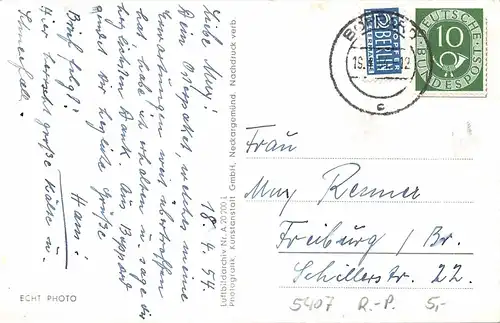 18.4.54.
Liebe Muy!
Dein Osterpaket, welches meine
Erwartungen weit übertroffen
hat habe ich erhalten u. sage dir
herzlichsten Dank. Aus Boppard
grüßt dir herzliche Grüße
Hans!
Brief folgt!
Hier herrscht große Kälte u.
Schneefall.
ECHT PHOTO
Luftbildarchiv Nr. A 20700 L
Photogrunk, Kunstanstalt GmbH, Neckargemünd. Nachdruck verb.
NOTOPFER
2 BERLIN
STEUERMARKE
DEUTSCHE BUNDESPOST
10
c
Frau
Muy Renner
Freiburg / Br.
Schillerstr. 22.
5407 R.-P. 5,-